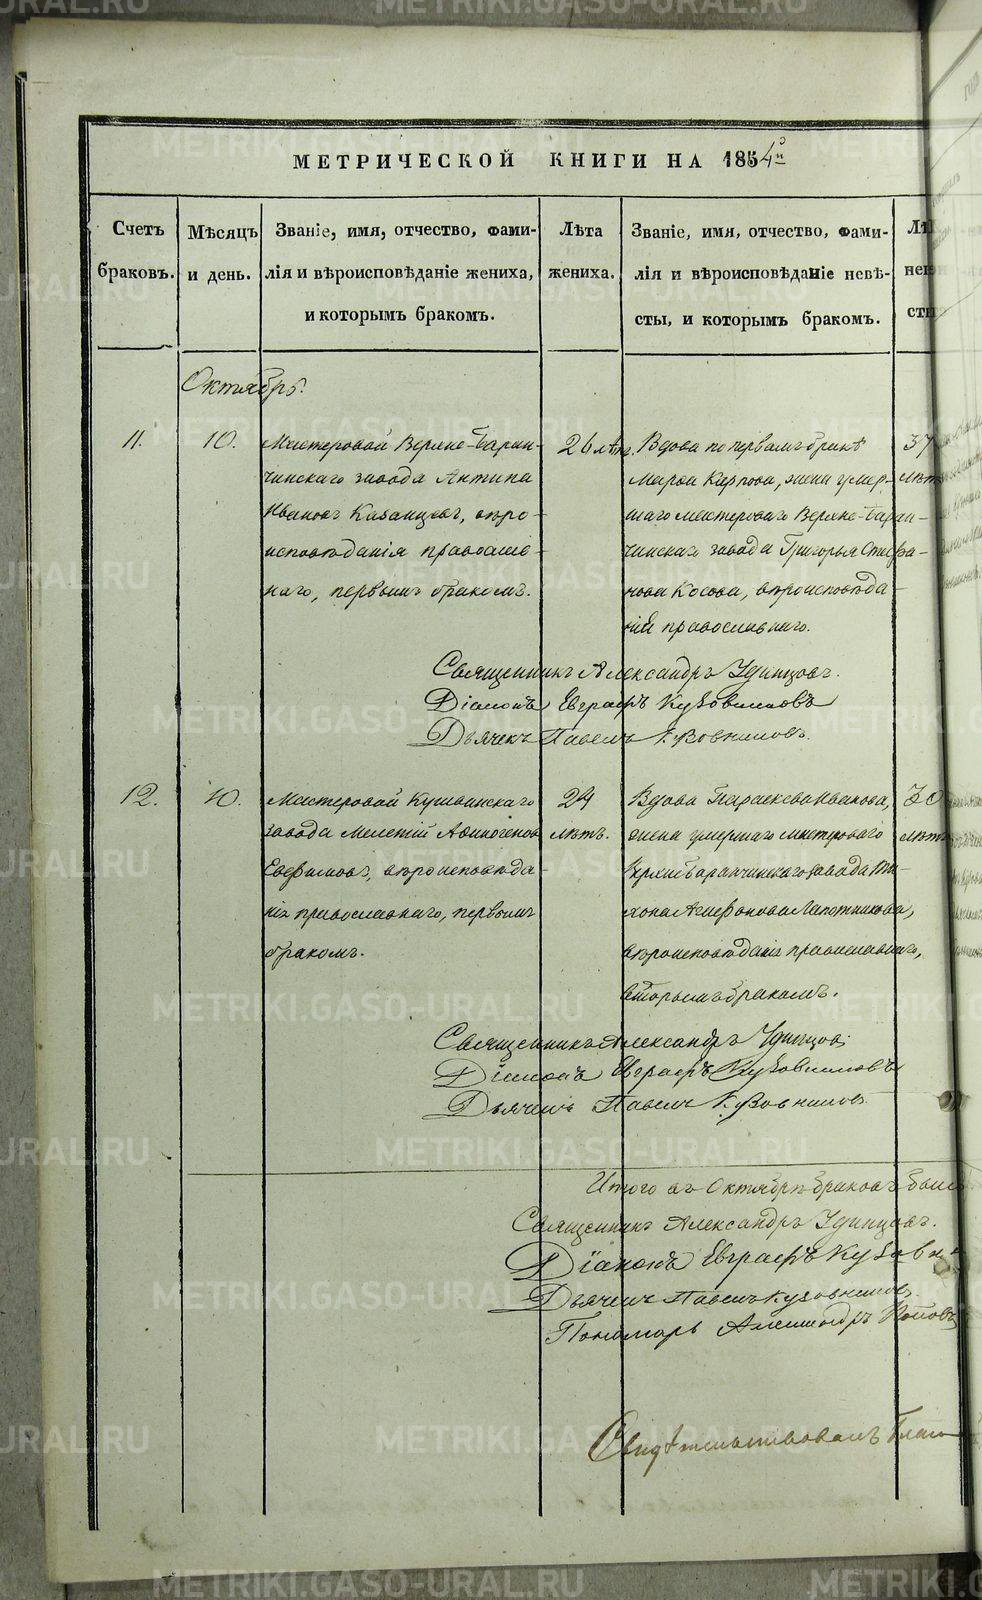 МЕТРИЧЕСКОЙ КНИГИ НА 1854й
Счетъ браковъ.
Мѣсяцъ и день.
Званіе, имя, отчество, фами-
лія и вѣроисповѣданіе жениха,
и которымъ бракомъ.
Лѣта жениха.
Званіе, имя, отчество, фами-
лія и вѣроисповѣданіе невѣ-
сты, и которымъ бракомъ.
Октябрь.
11.
10.
Мастеровой Верхне-Баран-
чинскаго завода Антипа
Ивановъ Казанцевъ, вѣро-
исповѣданія православ-
наго, первымъ бракомъ.
26 лѣтъ.
Вдова по первомъ бракѣ
Марѳа Карпова, жена умер-
шаго мастероваго Верхне-Баран-
чинскаго завода Григорья Стефа-
нова Косова, вѣроисповѣда-
нія православнаго.
37
лѣтъ
Священникъ Александръ Удинцовъ.
Діаконъ Евграфъ Кузовниковъ
Дьячекъ Павелъ Кузовниковъ.
12.
10.
Мастеровой Кушвинскаго
завода Мелетій Афиногеновъ
Евфимовъ, вѣроисповѣда-
нія православнаго, первымъ
бракомъ.
24
лѣтъ.
Вдова Параскева Иванова,
жена умершаго мастероваго
Верхнебаранчинскаго завода Ти-
хона Агафонова Лапотникова,
вѣроисповѣданія православнаго,
вторымъ бракомъ.
30
лѣтъ
Священникъ Александръ Удинцовъ
Діаконъ Евграфъ Кузовниковъ
Дьячекъ Павелъ Кузовниковъ
Итого въ Октябрѣ браковъ было
Священникъ Александръ Удинцовъ.
Діаконъ Евграфъ Кузовни
Дьячекъ Павелъ Кузовниковъ.
Пономарь Александръ Поповъ
Свидѣтельствовалъ Благо
METRIKI.GASO-URAL.RU